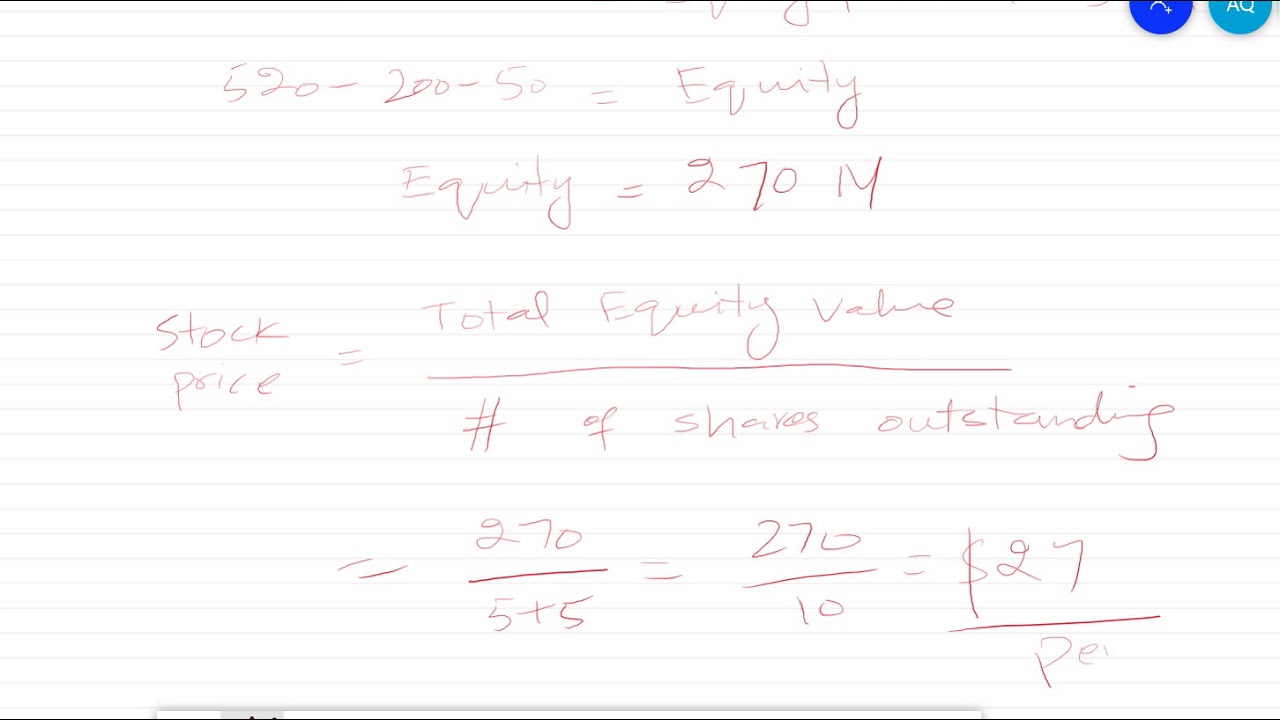 AQ
520 - 200 - 50 = Equity
Equity = 270 M
Stock price = Total Equity Value
# of shares outstanding
= 270 / 5+5 = 270 / 10 = $27
Per